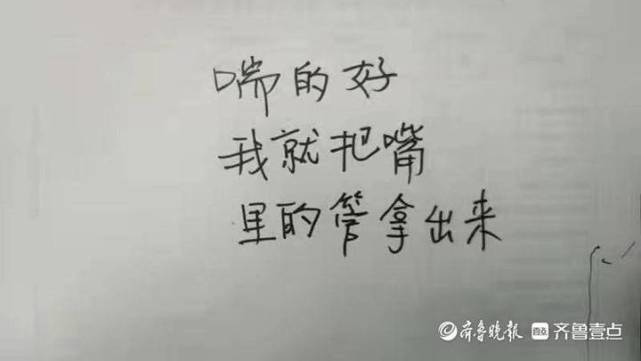 喘的好
我就把嘴
里的管拿出来
齐鲁晚报 齐鲁壹点